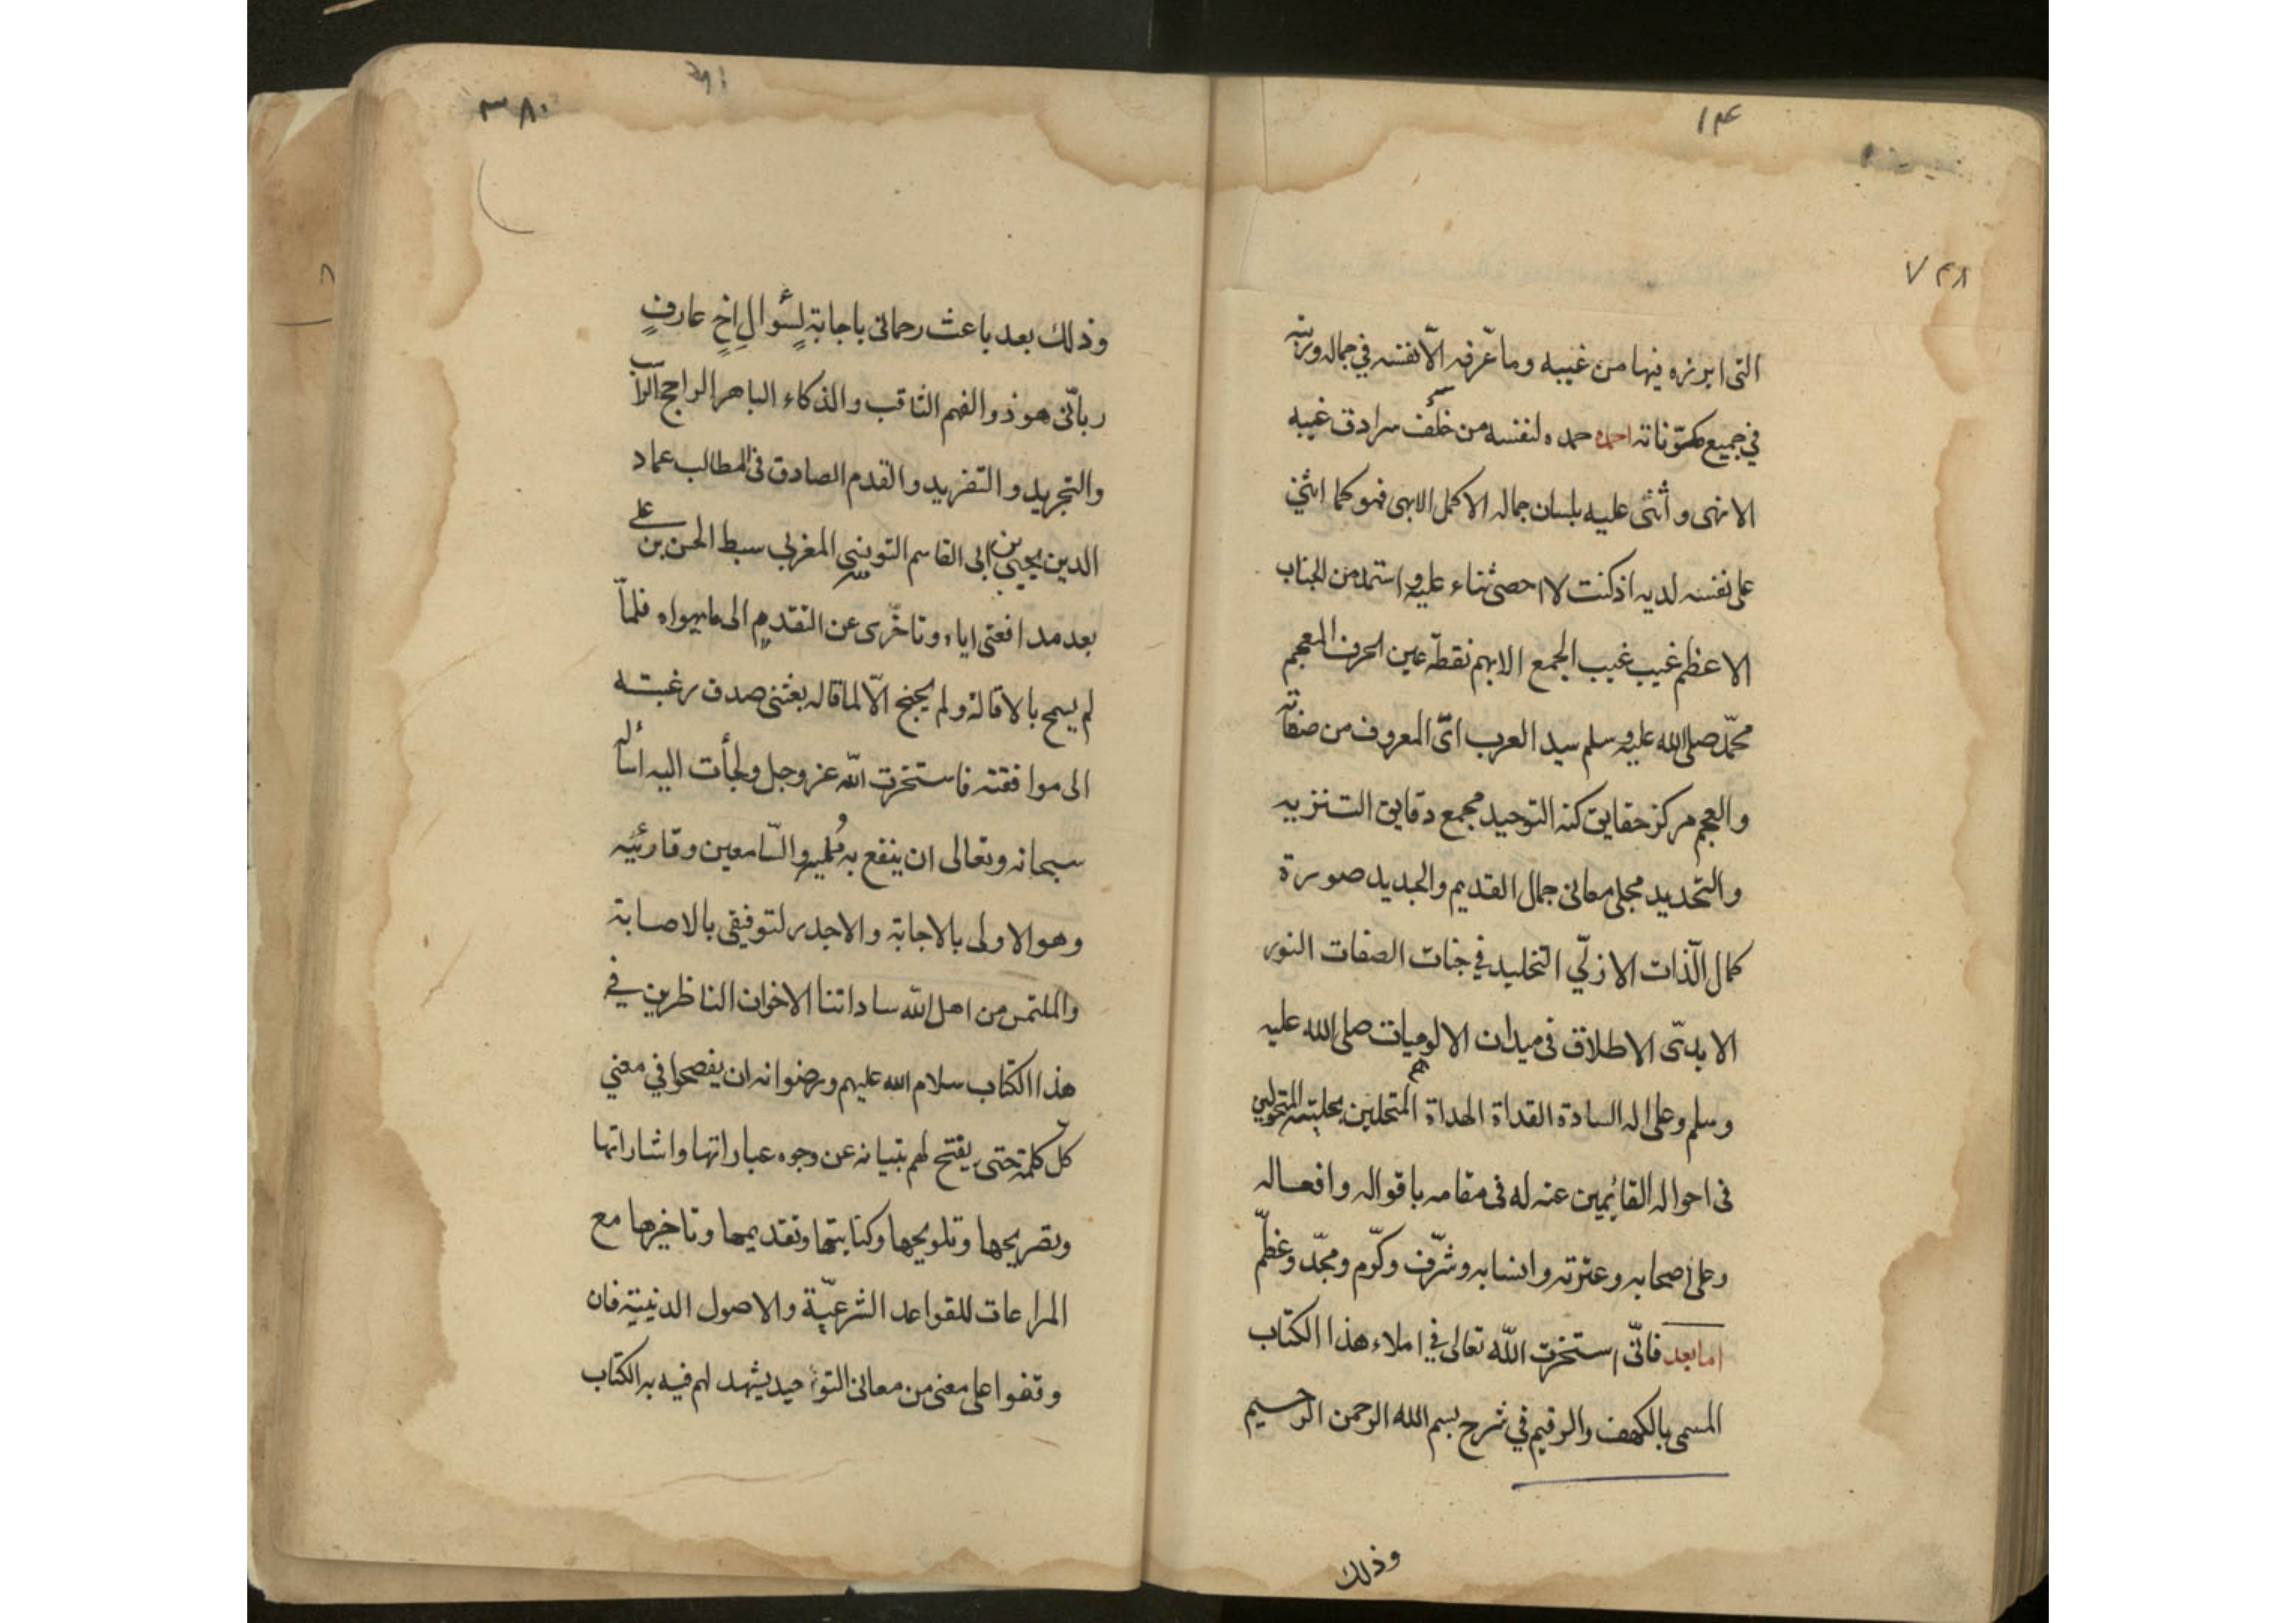 ١٣
٧٣٨
التى ابرزه فيها من غيبه وما عرفه الّا نفسه فى جماله
فى جميع مكوّناته احمده حمده لنفسه من خلف سرادق غيبه
الانهى و أثنى عليه بلسان جماله الاكمل الابهى فهو كما اثنى
على نفسه لديه اذ كنت لا احصى ثناء عليه و استمد من الجناب
الاعظم غيب غيب الجمع الابهم نقطة عين الحرف المعجم
محمّد صلى الله عليه وسلم سيد العرب المعروف من صفاته
والعجم مركز حقايق كنه التوحيد مجمع دقايق التنزيه
والتحديد مجلى معانى جمال القديم والجديد صورة
كمال الّذات الازلّي التخليد في جنات الصفات النور
الابدىّ الاطلاق فى ميدان الالوهيات صلى الله عليه
وسلم وعلى اله السادة القداة الهداة المتحلين بحليته
فى احواله القايمين عنه له فى مقامه باقواله وافعاله
وعلى اصحابه وعترته وانسابه وشرّف وكرّم ومجّد وعظّم
اما بعد فانّى استخرت اللّه تعالى في املاء هذا الكتاب
المسمى بالكهف والرقيم في شرح بسم الله الرحمن الرحيم
وذلك
٣٨٠
وذلك بعد باعث رحمانى باجابةٍ لسؤالِ اخٍ عارفٍ
ربانّى هو ذو الفهم الثاقب والذكاء الباهر الراجح
والتجريد و التفريد و القدم الصادق فى المطالب عماد
الدين يحيى بن ابى القاسم التونسى المغربى سبط الحسن بن على
بعد مدافعتى اياه وتاخّرى عن التقدم الى ما يهواه فلمّا
لم يسمح بالاقالة ولم يجنح الّا لما قاله بعثنى صدق رغبته
الى موافقته فاستخرت اللّه عز وجل ولجأت اليه اسأله
سبحانه وتعالى ان ينفع به مُمليه والسّامعين وقارئيه
وهو الاولى بالاجابة والاجدر لتوفيقى بالاصابة
والملتمس من اهل اللّه ساداتنا الاخوان الناظرين في
هذا الكتاب سلام الله عليهم ورضوانه ان يفصحوا في معنى
كلّ كلمة حتى يفتح لهم بتبيانه عن وجوه عباراتها واشاراتها
وتصريحها وتلويحها وكنايتها وتقديمها وتاخيرها مع
المراعات للقواعد الشرعيّة والاصول الدينية فان
وقفوا على معنى من معانى التوحيد يشهد لهم فيه به الكتاب